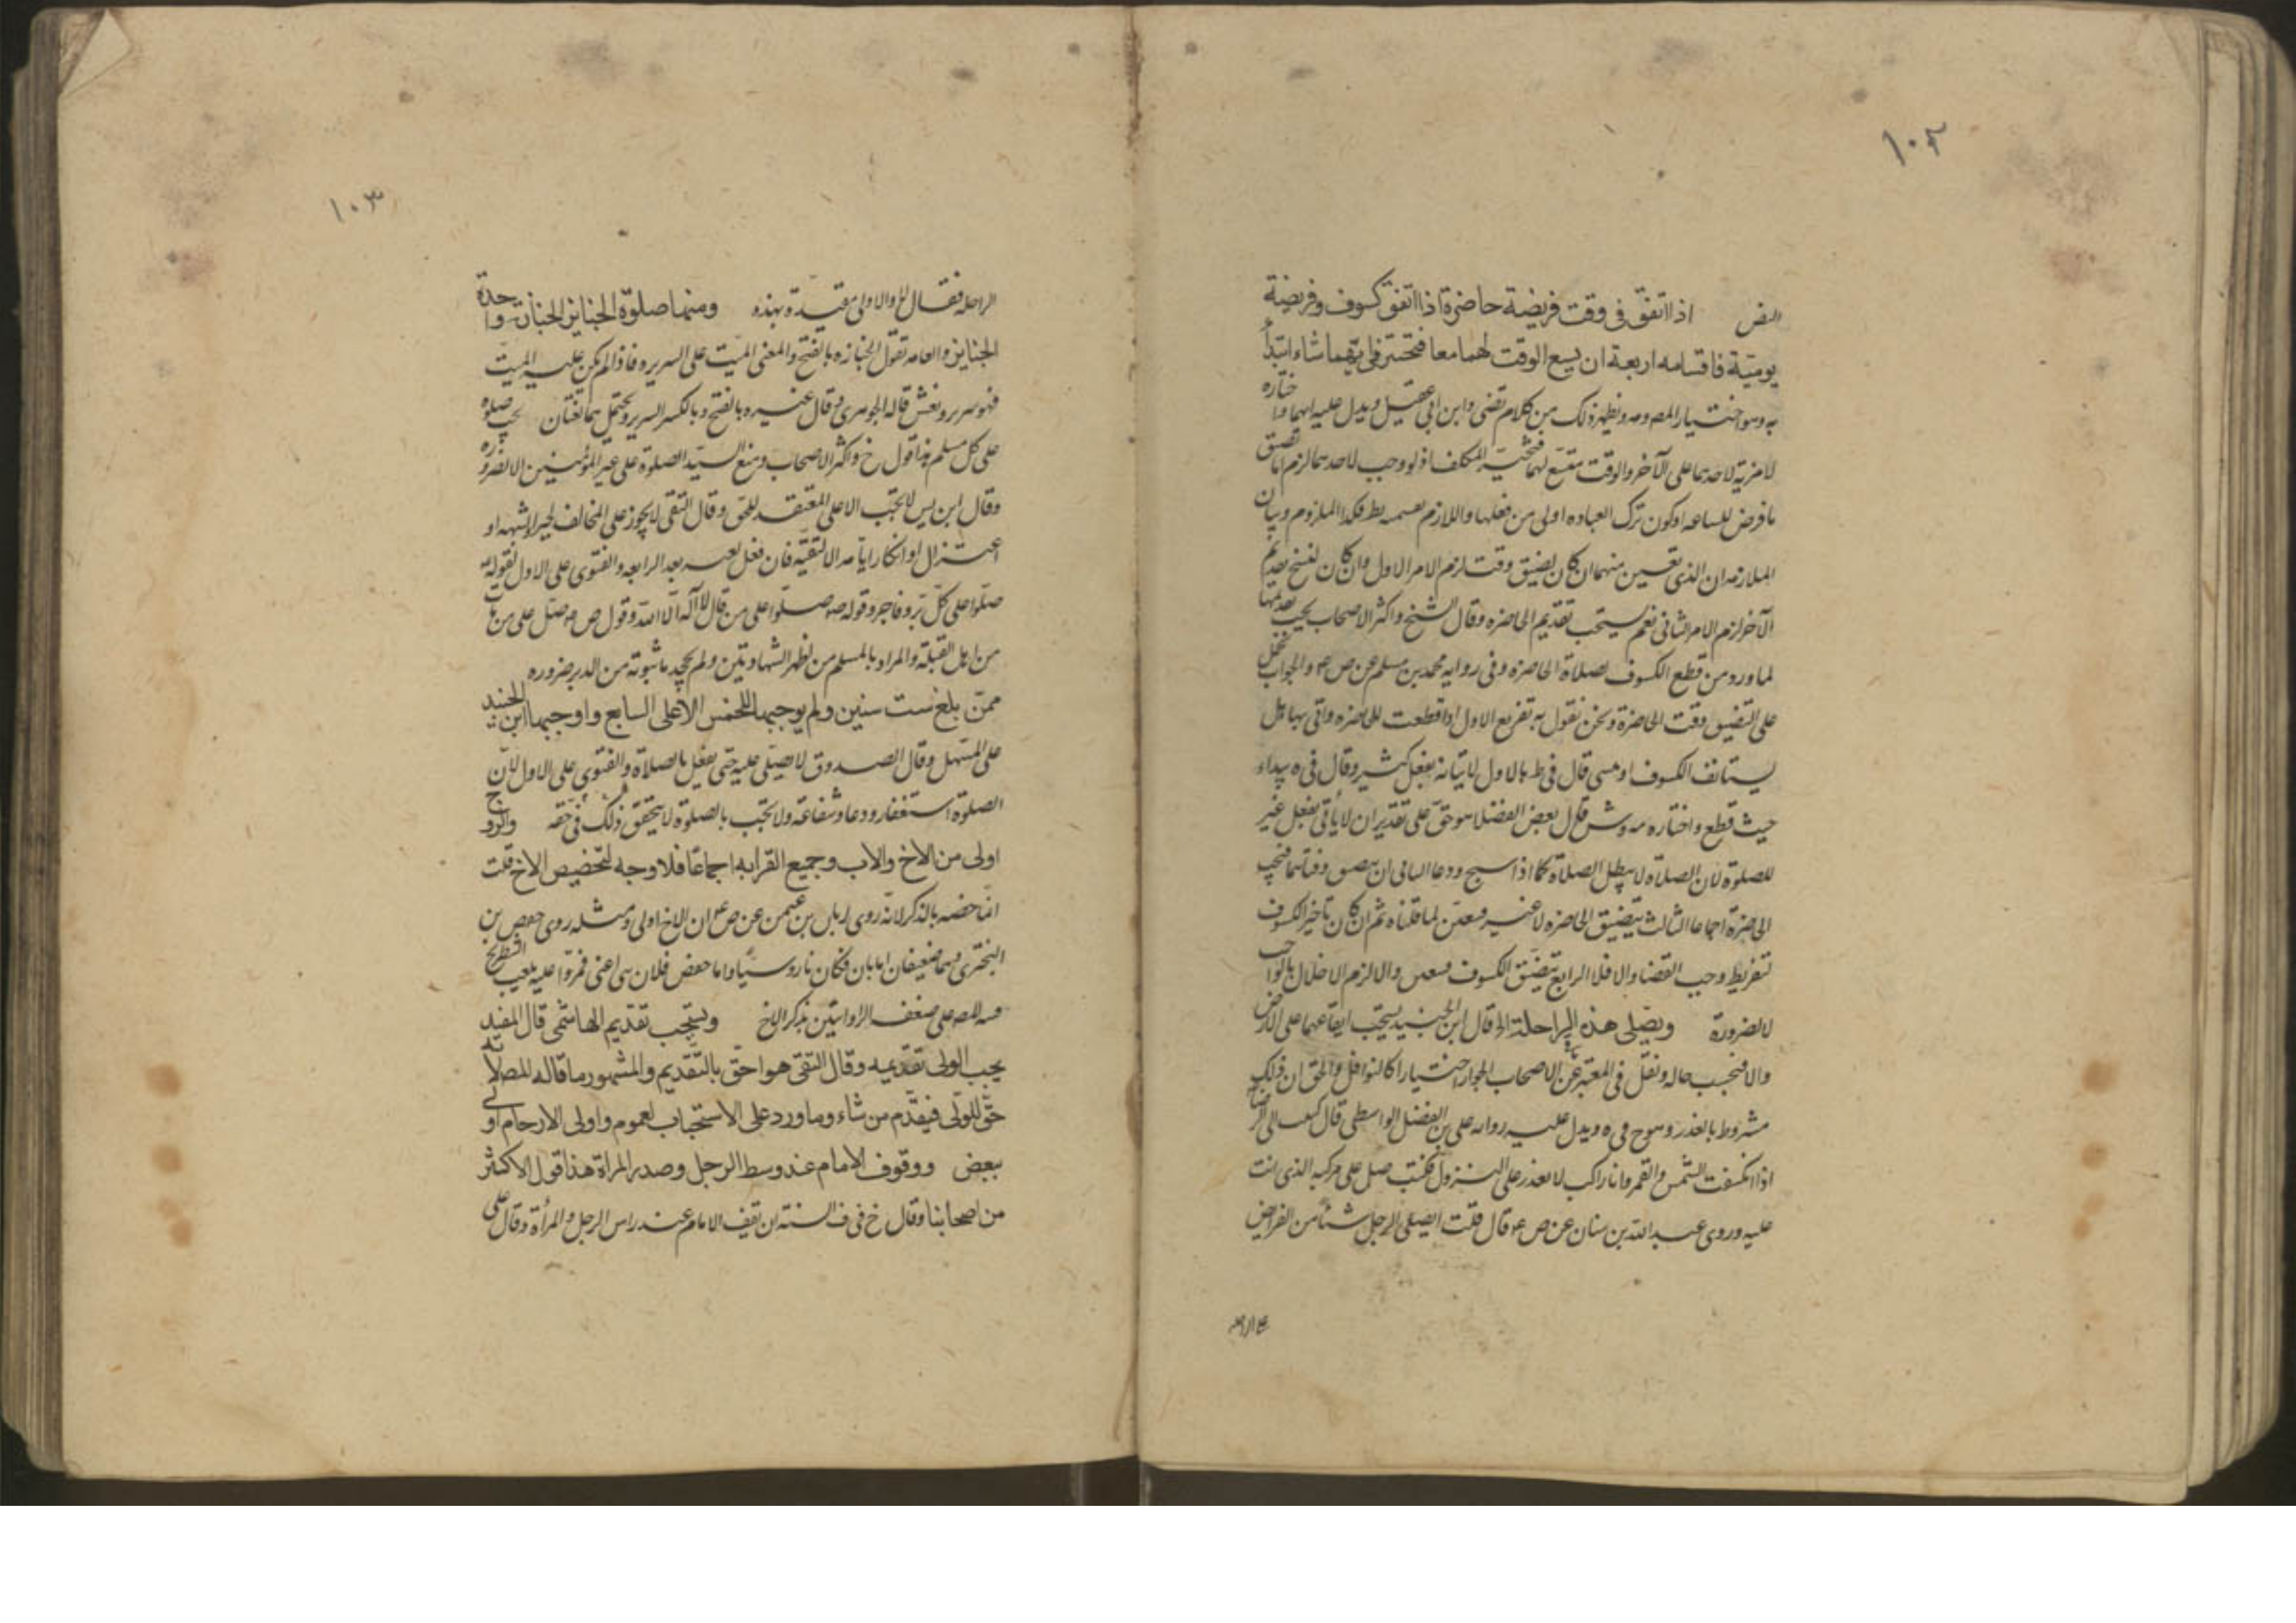 ١٠٢
النص اذا اتفق فى وقت فريضة حاضرة اذا اتفق كسوف وفريضة
يومية فاقسامه اربعة ان يسع الوقت لهما معا فتخير فايهما شاء ابتدأ
به وهو اختيار المص وظهر ذلك من كلام تضى وابن ابى عقيل ويدل عليه انهما
لا مزية لاحدهما على الآخر والوقت متسع لهما فتخير المكلف اذ لو وجب لاحدهما لزم اما
ما فرض للساعه او كون ترك العباده اولى من فعلها واللازم بط فكذا الملزوم وبيان
الملازمه ان الذى تعين منهما ان كان يضيق وقت لزم الامر الاول وان كان
الآخر لزم الامر الثانى نعم يستحب تقديم الحاضره وقال الشيخ واكثر الاصحاب يجب
لما ورد من قطع الكسوف لصلاة الحاضره وفى روايه محمد بن مسلم عن ص ع والجواب
على التضيق وقت الحاضرة ونحن نقول به تفريع الاول اذا قطعت للحاضره واتى بها هل
يستانف الكسوف او يبنى قال فى ط بالاول لاتيانه بفعل كثير وقال فى ه
حيث قطع واختاره قال بعض الفضلا هو حق على تقدير ان لا ياتى بفعل غير
للصلوة لان الصلاة لا يبطل الصلاة كما اذا سبح ودعا الثانى ان
الحاضرة اجماعا الثالث يتضيق الحاضره لا غير فتعين لما قلناه ثم ان كان تاخير الكسوف
لتفريط وجب القضا والا فلا الرابع تضيق الكسوف فتعين والا لزم الاخلال بالواجب
لا لضرورة ويصلى هذه الراحلة قال ابن الجنيد يستحب ايقاعها على الارض
والا فبحسب حاله ونقل فى المعتبر عن الاصحاب الجواز اختيارا كالنوافل والحق ان ذلك
مشروط بالعذر وهو ح فى ه ويدل عليه روايه على بن الفضل الواسطى قال كتبت الى الرضا
اذا انكسفت الشمس والقمر وانا راكب لا نقدر على النزول فكتب صل على مركبه الذى انت
عليه وروى عبد الله بن سنان عن ص ع قال قلت ايصلى الرجل شئا من الفرايض
١٠٣
الراحله فقال لا والاولى مقيدة بهذه ومنها صلوة الجنايز الجنازة واحدة
الجنايز والعامه تقول الجنازه بالفتح والمعنى الميت على السرير فاذا لم يكن عليه الميت
فهو سرير ونعش قاله الجوهرى وقال غيره بالفتح وبالكسر السرير ويحتمل هما لغتان يجب صلوة
على كل مسلم هذا قول خ واكثر الاصحاب ومنع السيد الصلوة على غير المؤمنين الا لضرورة
وقال ابن يس لا تجب الا على المعتقد للحق وقال التقى لا يجوز على المخالف لجبر او تشبيه او
اعتزال او انكار امامة الا لتقية فان فعل لعنه بعد الرابعه والفتوى على الاول لقوله
صلوا على كل بر وفاجر وقوله ص صلوا على من قال لا اله الا الله وقول ص ع صل على من مات
من اهل القبلة والمراد بالمسلم من اظهر الشهادتين ولم يجحد ما ثبوته من الدين ضروره
ممن بلغ ست سنين ولم يوجبها الحسن الا على السابع واوجبها ابن الجنيد
على المستهل وقال الصدوق لا يصلى عليه حتى يعقل بالصلاة والفتوى على الاول لان
الصلوة استغفار ودعا وشفاعة ولا تجب بالصلوة لا يتحقق ذلك فى حقه والزوج
اولى من الاخ والاب وجميع القرابه اجماعا فلا وجه لتخصيص الاخ قلت
انما خصه بالذكر لانه روى ابان بن عن ص ع ان الاخ اولى ومثله روى حفص بن
البخترى وهما ضعيفان اما ابان فكان ناووسيا واما حفص فلان بنى اعين غمزوا عليه بلعب الشطرنج
فنبه المص على ضعف الروايتين بذكر الاخ ويستحب تقديم الهاشمى قال المفيد
يجب الولى تقديمه وقال التقى هو احق بالتقديم والمشهور ما قاله المص لانه
حق للولى فيقدم من شاء وما ورد على الاستحباب لعموم واولى الارحام اولى
ببعض ووقوف الامام عند وسط الرجل وصدر المراة هذا قول الاكثر
من اصحابنا وقال خ فى ف السنة ان يقف الامام عند راس الرجل والمرأة وقال على